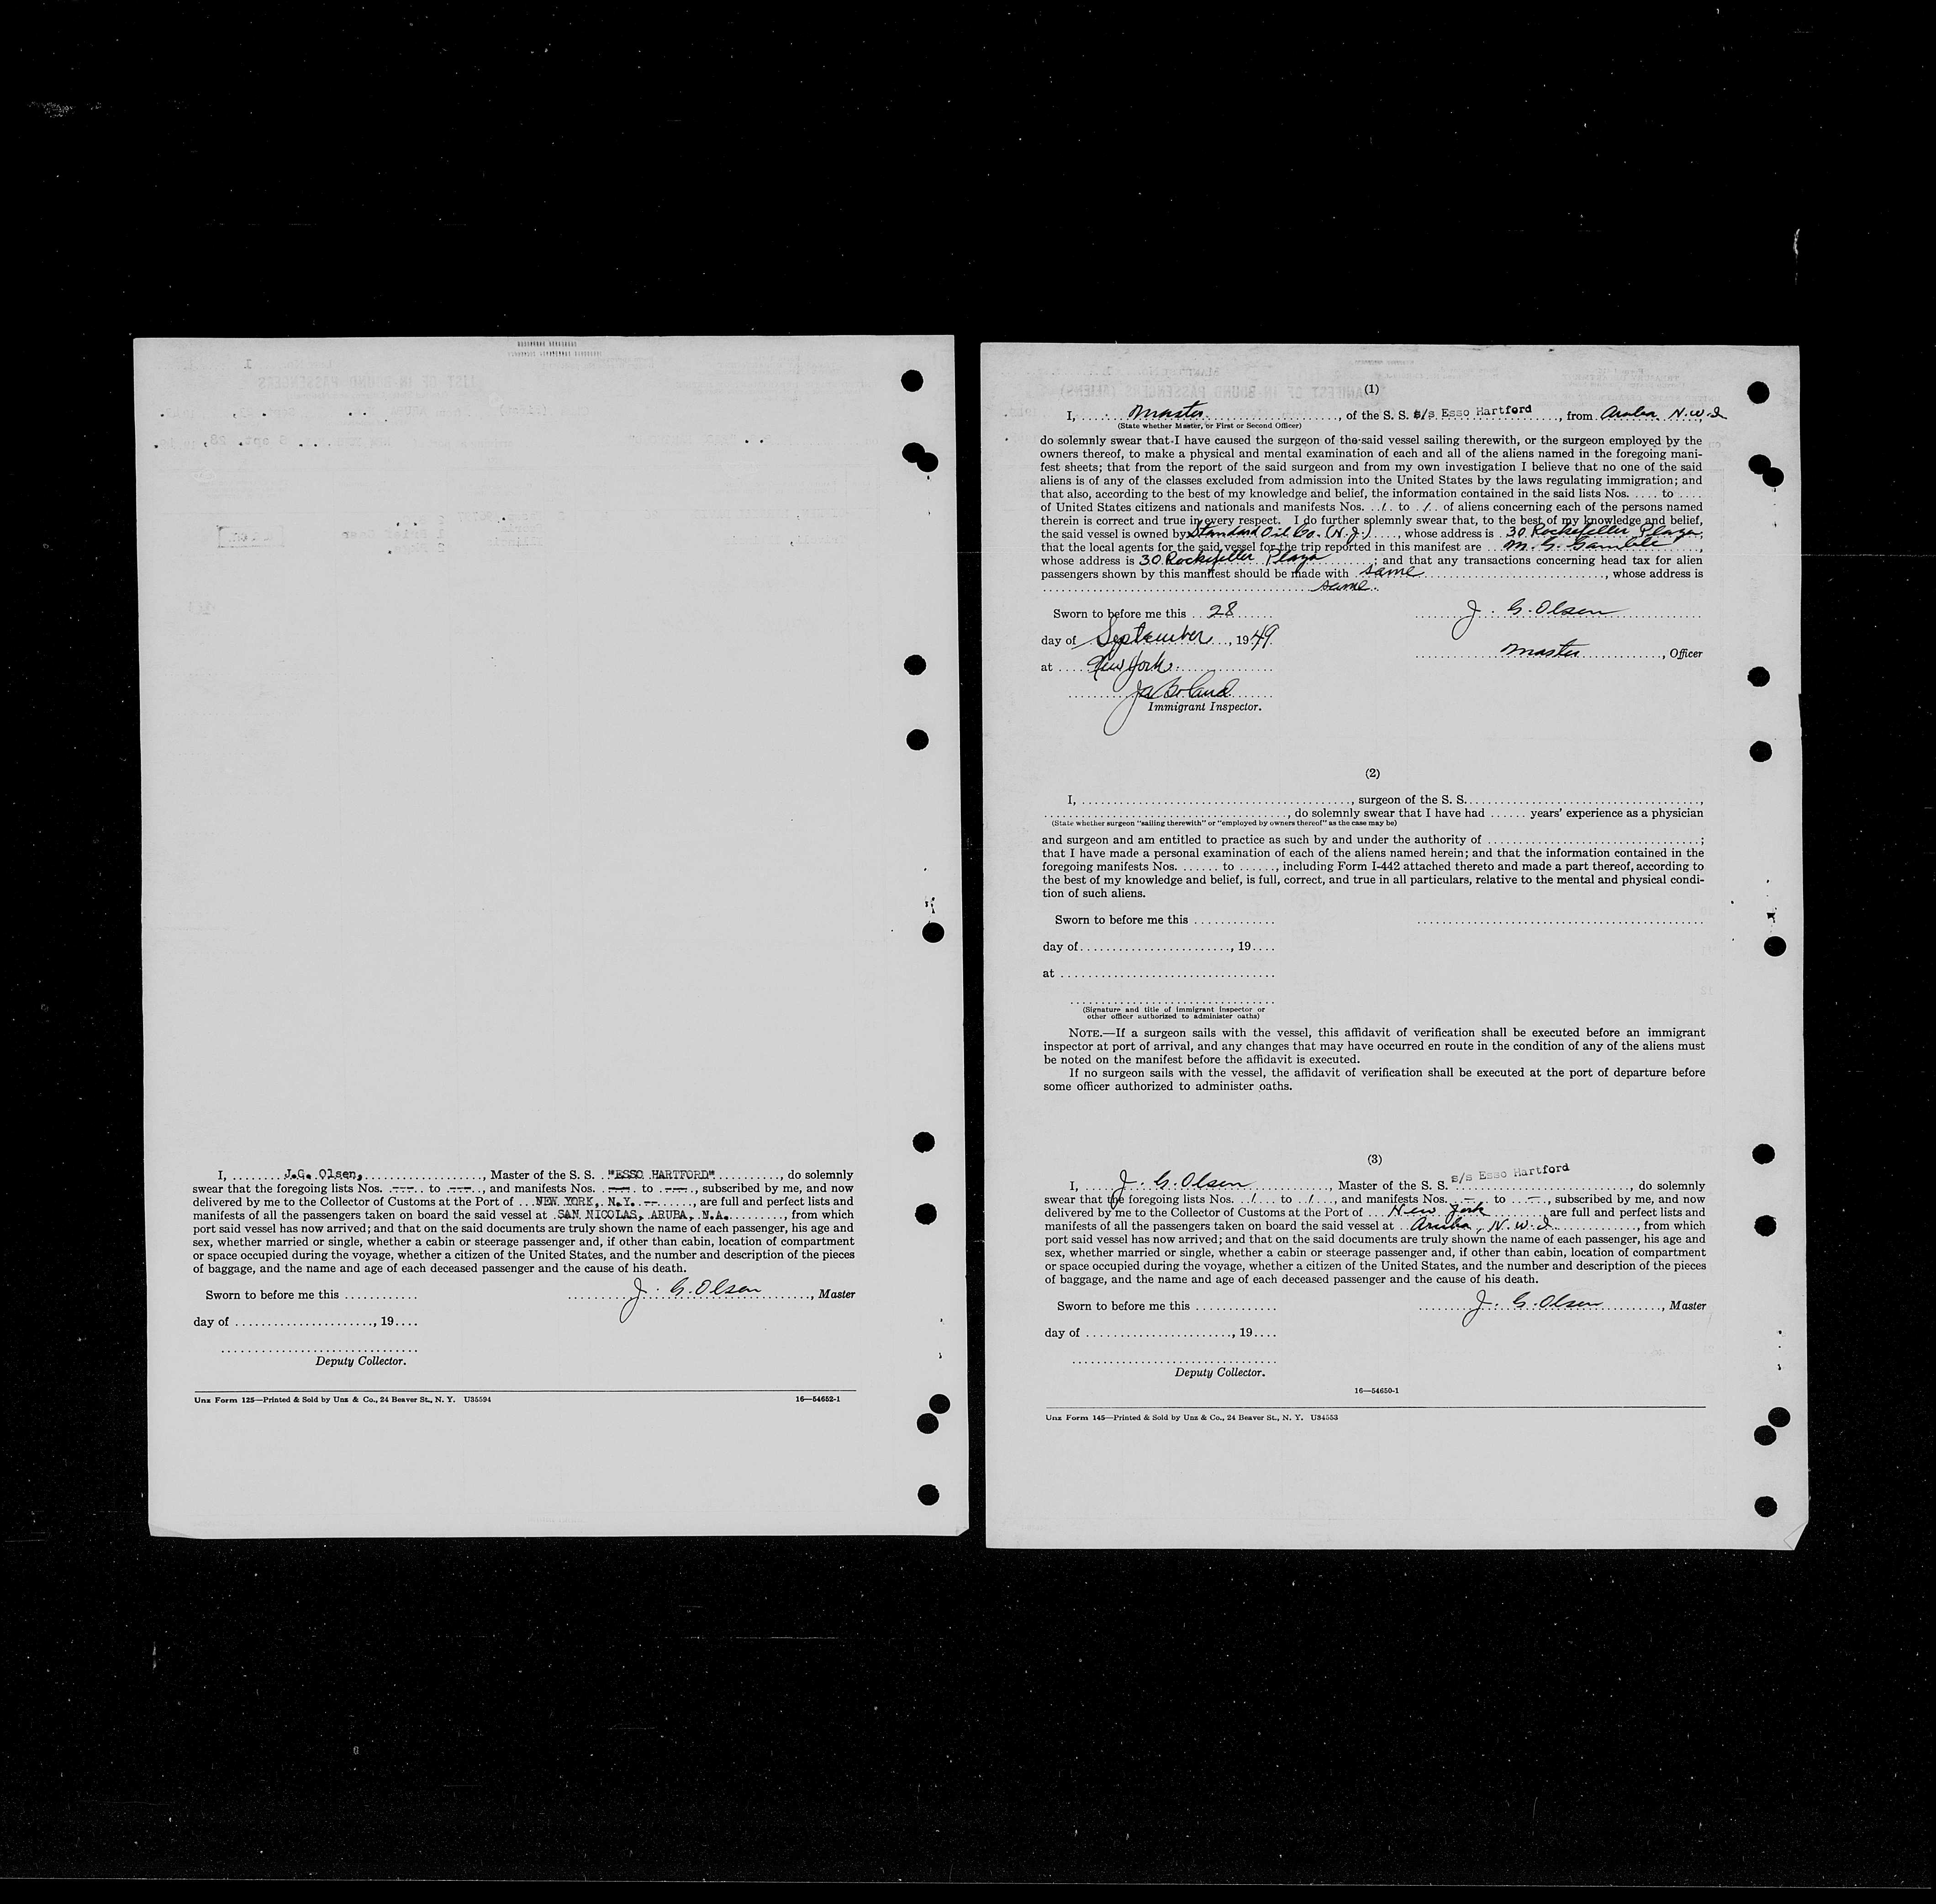 I, ......J.G. Olsen,..................., Master of the S. S. ."ESSO HARTFORD".........., do solemnly
swear that the foregoing lists Nos. .---. to .---.., and manifests Nos. .---. to .---., subscribed by me, and now
delivered by me to the Collector of Customs at the Port of ...NEW YORK, N.Y. --......., are full and perfect lists and
manifests of all the passengers taken on board the said vessel at .SAN NICOLAS, ARUBA, N.A.........., from which
port said vessel has now arrived; and that on the said documents are truly shown the name of each passenger, his age and
sex, whether married or single, whether a cabin or steerage passenger and, if other than cabin, location of compartment
or space occupied during the voyage, whether a citizen of the United States, and the number and description of the pieces
of baggage, and the name and age of each deceased passenger and the cause of his death.
Sworn to before me this ............ J. G. Olsen, Master
day of ......................, 19....
Deputy Collector.
Unz Form 125—Printed & Sold by Unz & Co., 24 Beaver St., N. Y. U35594 16—54652-1
(1)
I, Master, of the S. S. S/S Esso Hartford, from Aruba N.W.I
(State whether Master, or First or Second Officer)
do solemnly swear that I have caused the surgeon of the said vessel sailing therewith, or the surgeon employed by the
owners thereof, to make a physical and mental examination of each and all of the aliens named in the foregoing mani-
fest sheets; that from the report of the said surgeon and from my own investigation I believe that no one of the said
aliens is of any of the classes excluded from admission into the United States by the laws regulating immigration; and
that also, according to the best of my knowledge and belief, the information contained in the said lists Nos. .... to ....
of United States citizens and nationals and manifests Nos. ..1.. to ..1.. of aliens concerning each of the persons named
therein is correct and true in every respect. I do further solemnly swear that, to the best of my knowledge and belief,
the said vessel is owned by Standard Oil Co. (N.J.)...., whose address is 30 Rockefeller Plaza,
that the local agents for the said vessel for the trip reported in this manifest are M. G. Gamble,
whose address is 30 Rockefeller Plaza; and that any transactions concerning head tax for alien
passengers shown by this manifest should be made with same, whose address is
same.
Sworn to before me this 28 J. G. Olsen
day of September, 1949
Master, Officer
at New York
Ja Boland
Immigrant Inspector.
(2)
I, ........................................, surgeon of the S. S...................................,
...................................., do solemnly swear that I have had ...... years' experience as a physician
(State whether surgeon "sailing therewith" or "employed by owners thereof" as the case may be)
and surgeon and am entitled to practice as such by and under the authority of ................................;
that I have made a personal examination of each of the aliens named herein; and that the information contained in the
foregoing manifests Nos. ...... to ......, including Form I-442 attached thereto and made a part thereof, according to
the best of my knowledge and belief, is full, correct, and true in all particulars, relative to the mental and physical condi-
tion of such aliens.
Sworn to before me this .............
day of......................., 19....
at .................................
(Signature and title of immigrant inspector or
other officer authorized to administer oaths)
NOTE.—If a surgeon sails with the vessel, this affidavit of verification shall be executed before an immigrant
inspector at port of arrival, and any changes that may have occurred en route in the condition of any of the aliens must
be noted on the manifest before the affidavit is executed.
If no surgeon sails with the vessel, the affidavit of verification shall be executed at the port of departure before
some officer authorized to administer oaths.
(3)
I, J. G. Olsen, Master of the S. S. S/S Esso Hartford, do solemnly
swear that the foregoing lists Nos. ..1... to ..1..., and manifests Nos. ..-.. to ..-., subscribed by me, and now
delivered by me to the Collector of Customs at the Port of New York, are full and perfect lists and
manifests of all the passengers taken on board the said vessel at Aruba, N.W.I, from which
port said vessel has now arrived; and that on the said documents are truly shown the name of each passenger, his age and
sex, whether married or single, whether a cabin or steerage passenger and, if other than cabin, location of compartment
or space occupied during the voyage, whether a citizen of the United States, and the number and description of the pieces
of baggage, and the name and age of each deceased passenger and the cause of his death.
Sworn to before me this ............. J. G. Olsen, Master
day of ......................., 19....
Deputy Collector.
16—54650-1
Unz Form 145—Printed & Sold by Unz & Co., 24 Beaver St., N. Y. U34553